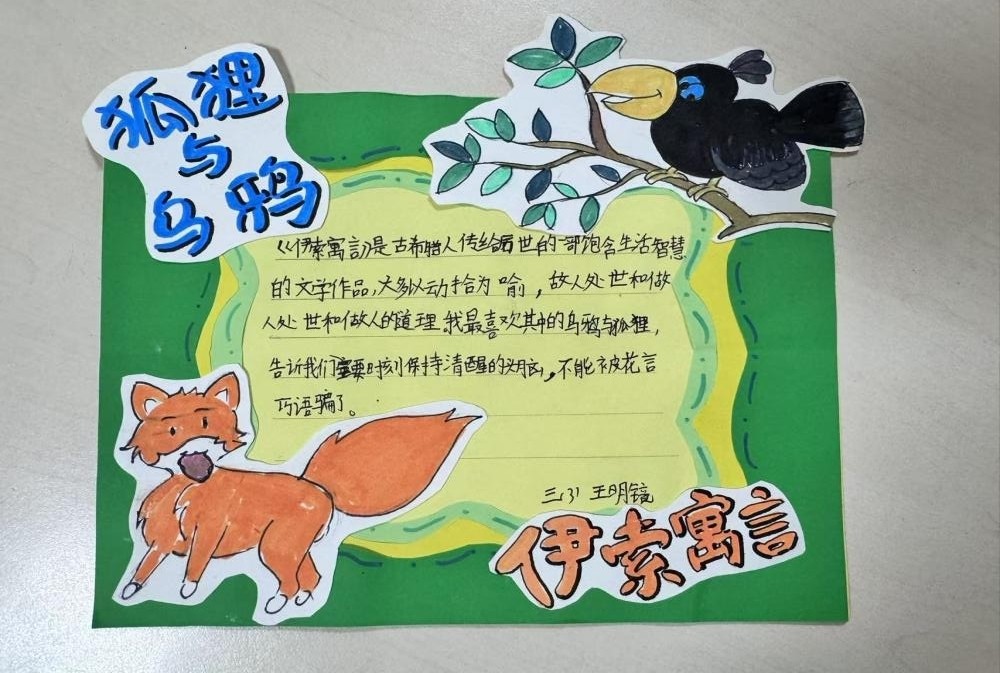 狐狸
与
乌鸦
《伊索寓言》是古希腊人传给后世的一部饱含生活智慧
的文学作品,大多以动物为喻,故人处世和做
人处世和做人的道理。我最喜欢其中的乌鸦与狐狸,
告诉我们要时刻保持清醒的头脑,不能被花言
巧语骗了。
三(3) 王明镜
伊索寓言